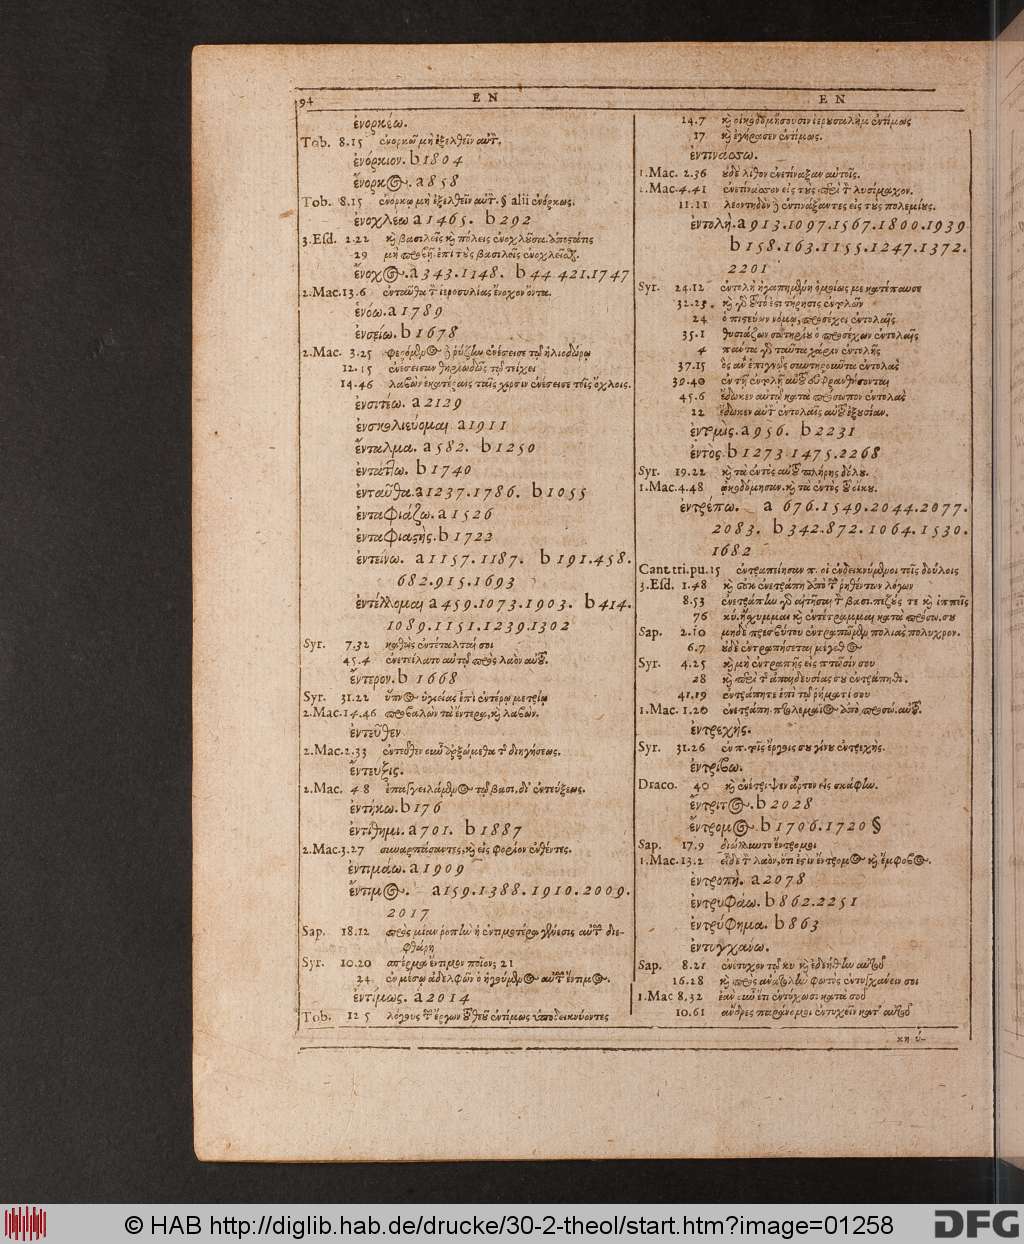 94
E N
E N
ἐνορκέω.
Tob. 8.15 ἐνορκῶ μὴ ἐξελθεῖν αὐτ.
ἐνόρκιον. b 1804
ἔνορκος. a 858
Tob. 8.15 ἐνορκω μὴ ἐξελθεῖν αὐτ. § alii ἐνόρκως.
ἐνοχλέω a 1465. b 292
3.Esd. 2.22 καὶ βασιλεῖς καὶ πόλεις ἐνοχλοῦσα.
29 ἐπὶ τοὺς βασιλεῖς ἐνοχλεῖσθ.
ἔνοχος. a 343.1148. b 44 421.1747
2.Mac.13.6 ἐνταῦθα τ ἱεροσυλίας ἔνοχον ὄντα.
ἐνόω. a 1789
ἐνσείω. b 1678
2.Mac. 3.25 ἐνέσεισε τῷ ἡλιοδώρω
12.15 ἐνέσεισαν θηριωδῶς τῷ τείχει
14.46 λαβὼν ἑκατέραις ταῖς χερσιν ἐνέσεισε τοῖς ὄχλοις.
ἐνσιτέω. a 2129
ἐνσκολιεύομαι a 1911
ἔνταλμα. a 582. b 1250
ἐντάττω. b 1740
ἐνταῦθα. a 1237.1786. b 1055
ἐνταφιάζω. a 1526
ἐνταφιαστὴς. b 1722
ἐντείνω. a 1157.1187. b 191.458.
682.915.1693
ἐντέλλομαι a 459.1073.1903. b 414.
1089.1151.1239.1302
Syr. 7.32 καθὼς ἐντέταλταί σοι
45.4 ἐνετείλατο αὐτῷ πρὸς λαὸν αὐτοῦ.
ἔντερον. b 1668
Syr. 31.22 ὕπνος ὑγιείας ἐπὶ ἐντέρῳ μετρίῳ
2.Mac.14.46 προβαλὼν τὰ ἔντερα, καὶ λαβὼν.
ἐντεῦθεν
2.Mac.2.33 ἐντεῦθεν οὖν ἀρξώμεθα τ διηγήσεως.
ἔντευξις.
2.Mac. 4 8 ἐπαγγειλάμενος τῷ βασι. δι' ἐντεύξεως.
ἐντήκω. b 176
ἐντίθημι. a 701. b 1887
2.Mac.3.27 συναρπάσαντες, καὶ εἰς φορίον ἐνθέντες.
ἐντιμάω. a 1909
ἔντιμος. a 159.1388.1910.2009.
2017
Sap. 18.12 πρὸς μίαν ῥοπὴν ἡ ἐντιμοτέρα γένεσις αὐτῶν διε-
φθάρη
Syr. 10.20 σπέρμα ἔντιμον ποῖον; 21
24 ἐν μέσῳ ἀδελφῶν ὁ ἡγούμενος αὐτῶν ἔντιμος.
ἐντίμως. a 2014
Tob. 12 5 λόγους τ ἔργων τοῦ θεοῦ ἐντίμως ὑποδεικνύοντες
14.7 καὶ οἰκοδομήσουσιν ἱερουσαλὴμ ἐντίμως
17 καὶ ἐγήρασεν ἐντίμως.
ἐντινάσσω.
1.Mac. 2.36 οὐδὲ λίθον ἐνετίναξαν αὐτοῖς.
2.Mac.4.41 ἐνετίνασσον εἰς τοὺς περὶ τ λυσίμαχον.
11.11 λεοντηδὸν ἐντινάξαντες εἰς τοὺς πολεμίους.
ἐντολὴ. a 913.1097.1567.1800.1939
b 158.163.1155.1247.1372.
2201
Syr. 24.12
32.23 καὶ τοῦτό ἐστι τήρησις ἐντολῶν
24 ὁ πιστεύων νόμῳ, προσέχει ἐντολαῖς
35.1 θυσιάζων σωτηρίου ὁ προσέχων ἐντολαῖς
4 παντα ταῦτα χάριν ἐντολῆς
37.15 ὃς ἂν ἐπιγνῷς συντηροῦντα ἐντολὰς
39.40
45.6 ἔδωκεν αὐτῷ κατὰ πρόσωπον ἐντολὰς
22 ἔδωκεν αὐτ ἐντολαῖς αὐτοῦ ἐξουσίαν.
ἐντομὶς. a 956. b 2231
ἐντὸς. b 1273 1475.2268
Syr. 19.22 καὶ τὰ ἐντὸς αὐτοῦ πλήρης δόλου.
1.Mac.4.48 ᾠκοδόμησαν. καὶ τὰ ἐντὸς τοῦ οἴκου.
ἐντρέπω. a 676.1549.2044.2077.
2083. b 342.872.1064.1530.
1682
Cant.tri.pu.15 ἐντραπείησαν π. οἱ ἐνδεικνύμενοι τοῖς δούλοις
3.Esd. 1.48 καὶ οὐκ ἐνετράπη ἀπὸ τ ῥηθέντων λόγων
8.53 ἐνετράπην αἰτῆσαι τ βασι. πεζούς τε καὶ ἱππεῖς
76
Sap. 2.10 μηδὲ πρεσβύτου ἐντραπῶμεν πολιας πολυχρον.
6.7 οὐδὲ ἐντραπήσεται μέγεθος
Syr. 4.25 καὶ μὴ ἐντραπῇς εἰς πτῶσίν σου
28 καὶ περὶ τ ἀπαιδευσίας σου ἐντράπηθι.
41.19 ἐντράπητε ἐπὶ τῷ ῥήματί σου
1.Mac. 1.20 ἐνετράπη πτολεμαῖος ἀπὸ προσώ. αὐτοῦ.
ἐντρεχὴς.
Syr. 31.26 ἐν π. τοῖς ἔργοις σου γίνου ἐντρεχὴς.
ἐντρίβω.
Draco. 40 καὶ ἐνέτριψεν ἄρτον εἰς σκάφην.
ἔντριτος. b 2028
ἔντρομος. b 1706.1720 §
Sap. 17.9 διώλλυντο ἔντρομοι
1.Mac.13.2 εἶδε τ λαὸν, ὅτι ἐστὶν ἔντρομος καὶ ἔμφοβος.
ἐντροπὴ. a 2078
ἐντρυφάω. b 862.2251
ἐντρύφημα. b 863
ἐντυγχάνω.
Sap. 8.21 ἐνέτυχον τῷ κυ καὶ ἐδεήθην αὐτοῦ
16.28 καὶ πρὸς ἀνατολὴν φωτὸς ἐντυγχάνειν σοι
1.Mac 8.32 ἐὰν οὖν ἔτι ἐντύχωσι κατὰ σοῦ
10.61 ἄνδρες παράνομοι ἐντυχεῖν κατ' αὐτοῦ
© HAB http://diglib.hab.de/drucke/30-2-theol/start.htm?image=01258
DFG